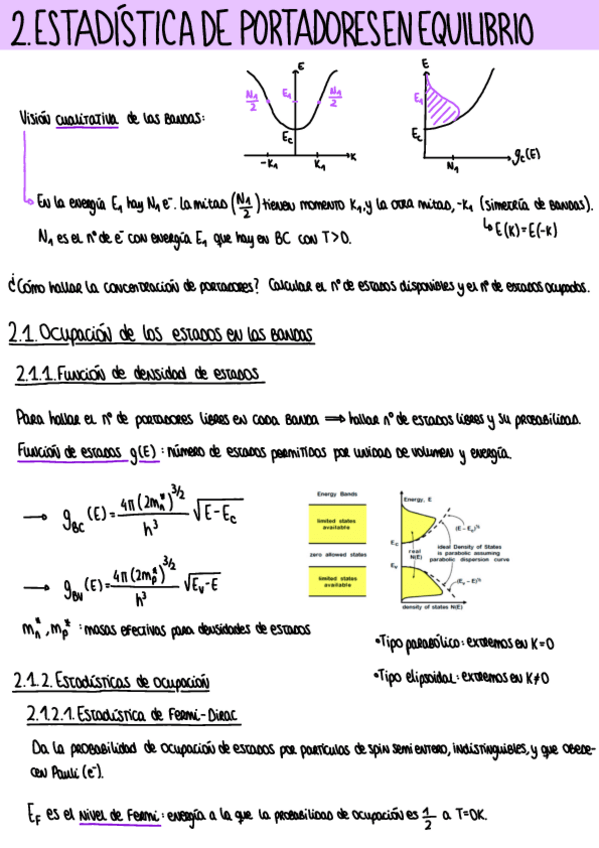 2. ESTADÍSTICA DE PORTADORES EN EQUILIBRIO
Visión cualitativa de las bandas:
E
N₁/2
E₁
N₁/2
Ec
-K₁
K₁
K
E
E₁
Ec
N₁
gc(E)
En la energía E₁ hay N₁ e⁻. La mitad (N₁/2) tienen momento K₁, y la otra mitad, -K₁ (simetría de bandas).
E(K)=E(-K)
N₁ es el nº de e⁻ con energía E₁ que hay en BC con T>0.
¿Cómo hallar la concentración de portadores? Calcular el nº de estados disponibles y el nº de estados ocupados.
2.1. Ocupación de los estados en las bandas
2.1.1. Función de densidad de estados
Para hallar el nº de portadores libres en cada banda ⟹ hallar nº de estados libres y su probabilidad.
Función de estados g(E): número de estados permitidos por unidad de volumen y energía.
→ g_BC (E) = 4π(2mₙ*)^3/2 / h³ √E-Ec
→ g_BV (E) = 4π(2mₚ*)^3/2 / h³ √Ev-E
Energy Bands
limited states
available
zero allowed states
limited states
available
Energy, E
(E – Ec)½
Ec
Ideal Density of States
real
N(E)
is parabolic assuming
parabolic dispersion curve
Ev
(Ev – E)½
density of states N(E)
mₙ*, mₚ*: masas efectivas para densidades de estados
•Tipo parabólico: extremos en K=0
•Tipo elipsoidal: extremos en K≠0
2.1.2. Estadísticas de ocupación
2.1.2.1. Estadística de Fermi-Dirac
Da la probabilidad de ocupación de estados por partículas de spin semientero, indistinguibles, y que obede-
cen Pauli (e⁻).
E_F es el nivel de Fermi: energía a la que la probabilidad de ocupación es 1/2 a T=0K.